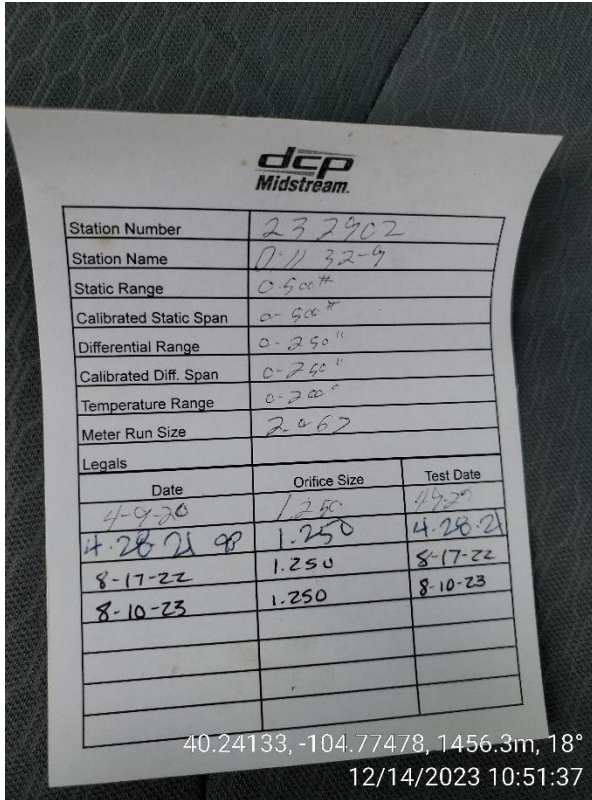 dcp
Midstream.
Station Number 232902
Station Name 32-9
Static Range 0-500#
Calibrated Static Span 0-500#
Differential Range 0-250"
Calibrated Diff. Span 0-250"
Temperature Range 0-200°
Meter Run Size 2.067
Legals
Date Orifice Size Test Date
4-9-20 1.250
4-28-21 1.250 4-28-21
8-17-22 1.250 8-17-22
8-10-23 1.250 8-10-23
40.24133, -104.77478, 1456.3m, 18°
12/14/2023 10:51:37